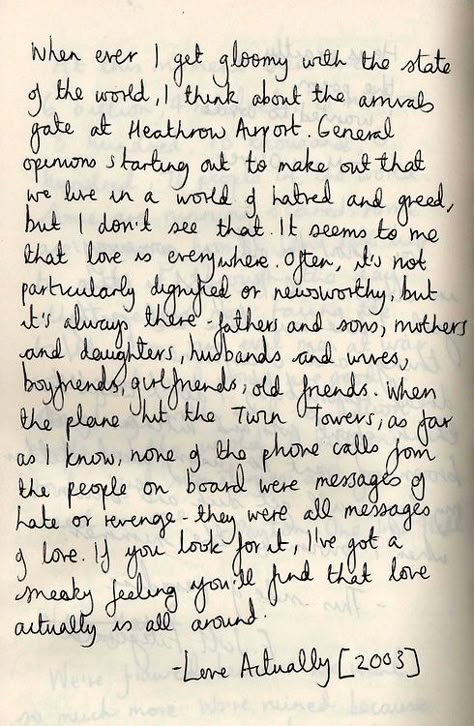 When ever I get gloomy with the state
of the world, I think about the arrivals
gate at Heathrow Airport. General
opinions starting out to make out that
we live in a world of hatred and greed,
but I don't see that. It seems to me
that love is everywhere. Often, it's not
particularly dignified or newsworthy, but
it's always there - fathers and sons, mothers
and daughters, husbands and wives,
boyfriends, girlfriends, old friends. When
the plane hit the Twin Towers, as far
as I know, none of the phone calls from
the people on board were messages of
hate or revenge - they were all messages
of love. If you look for it, I've got a
sneaky feeling you'll find that love
actually is all around.
- Love Actually [2003]